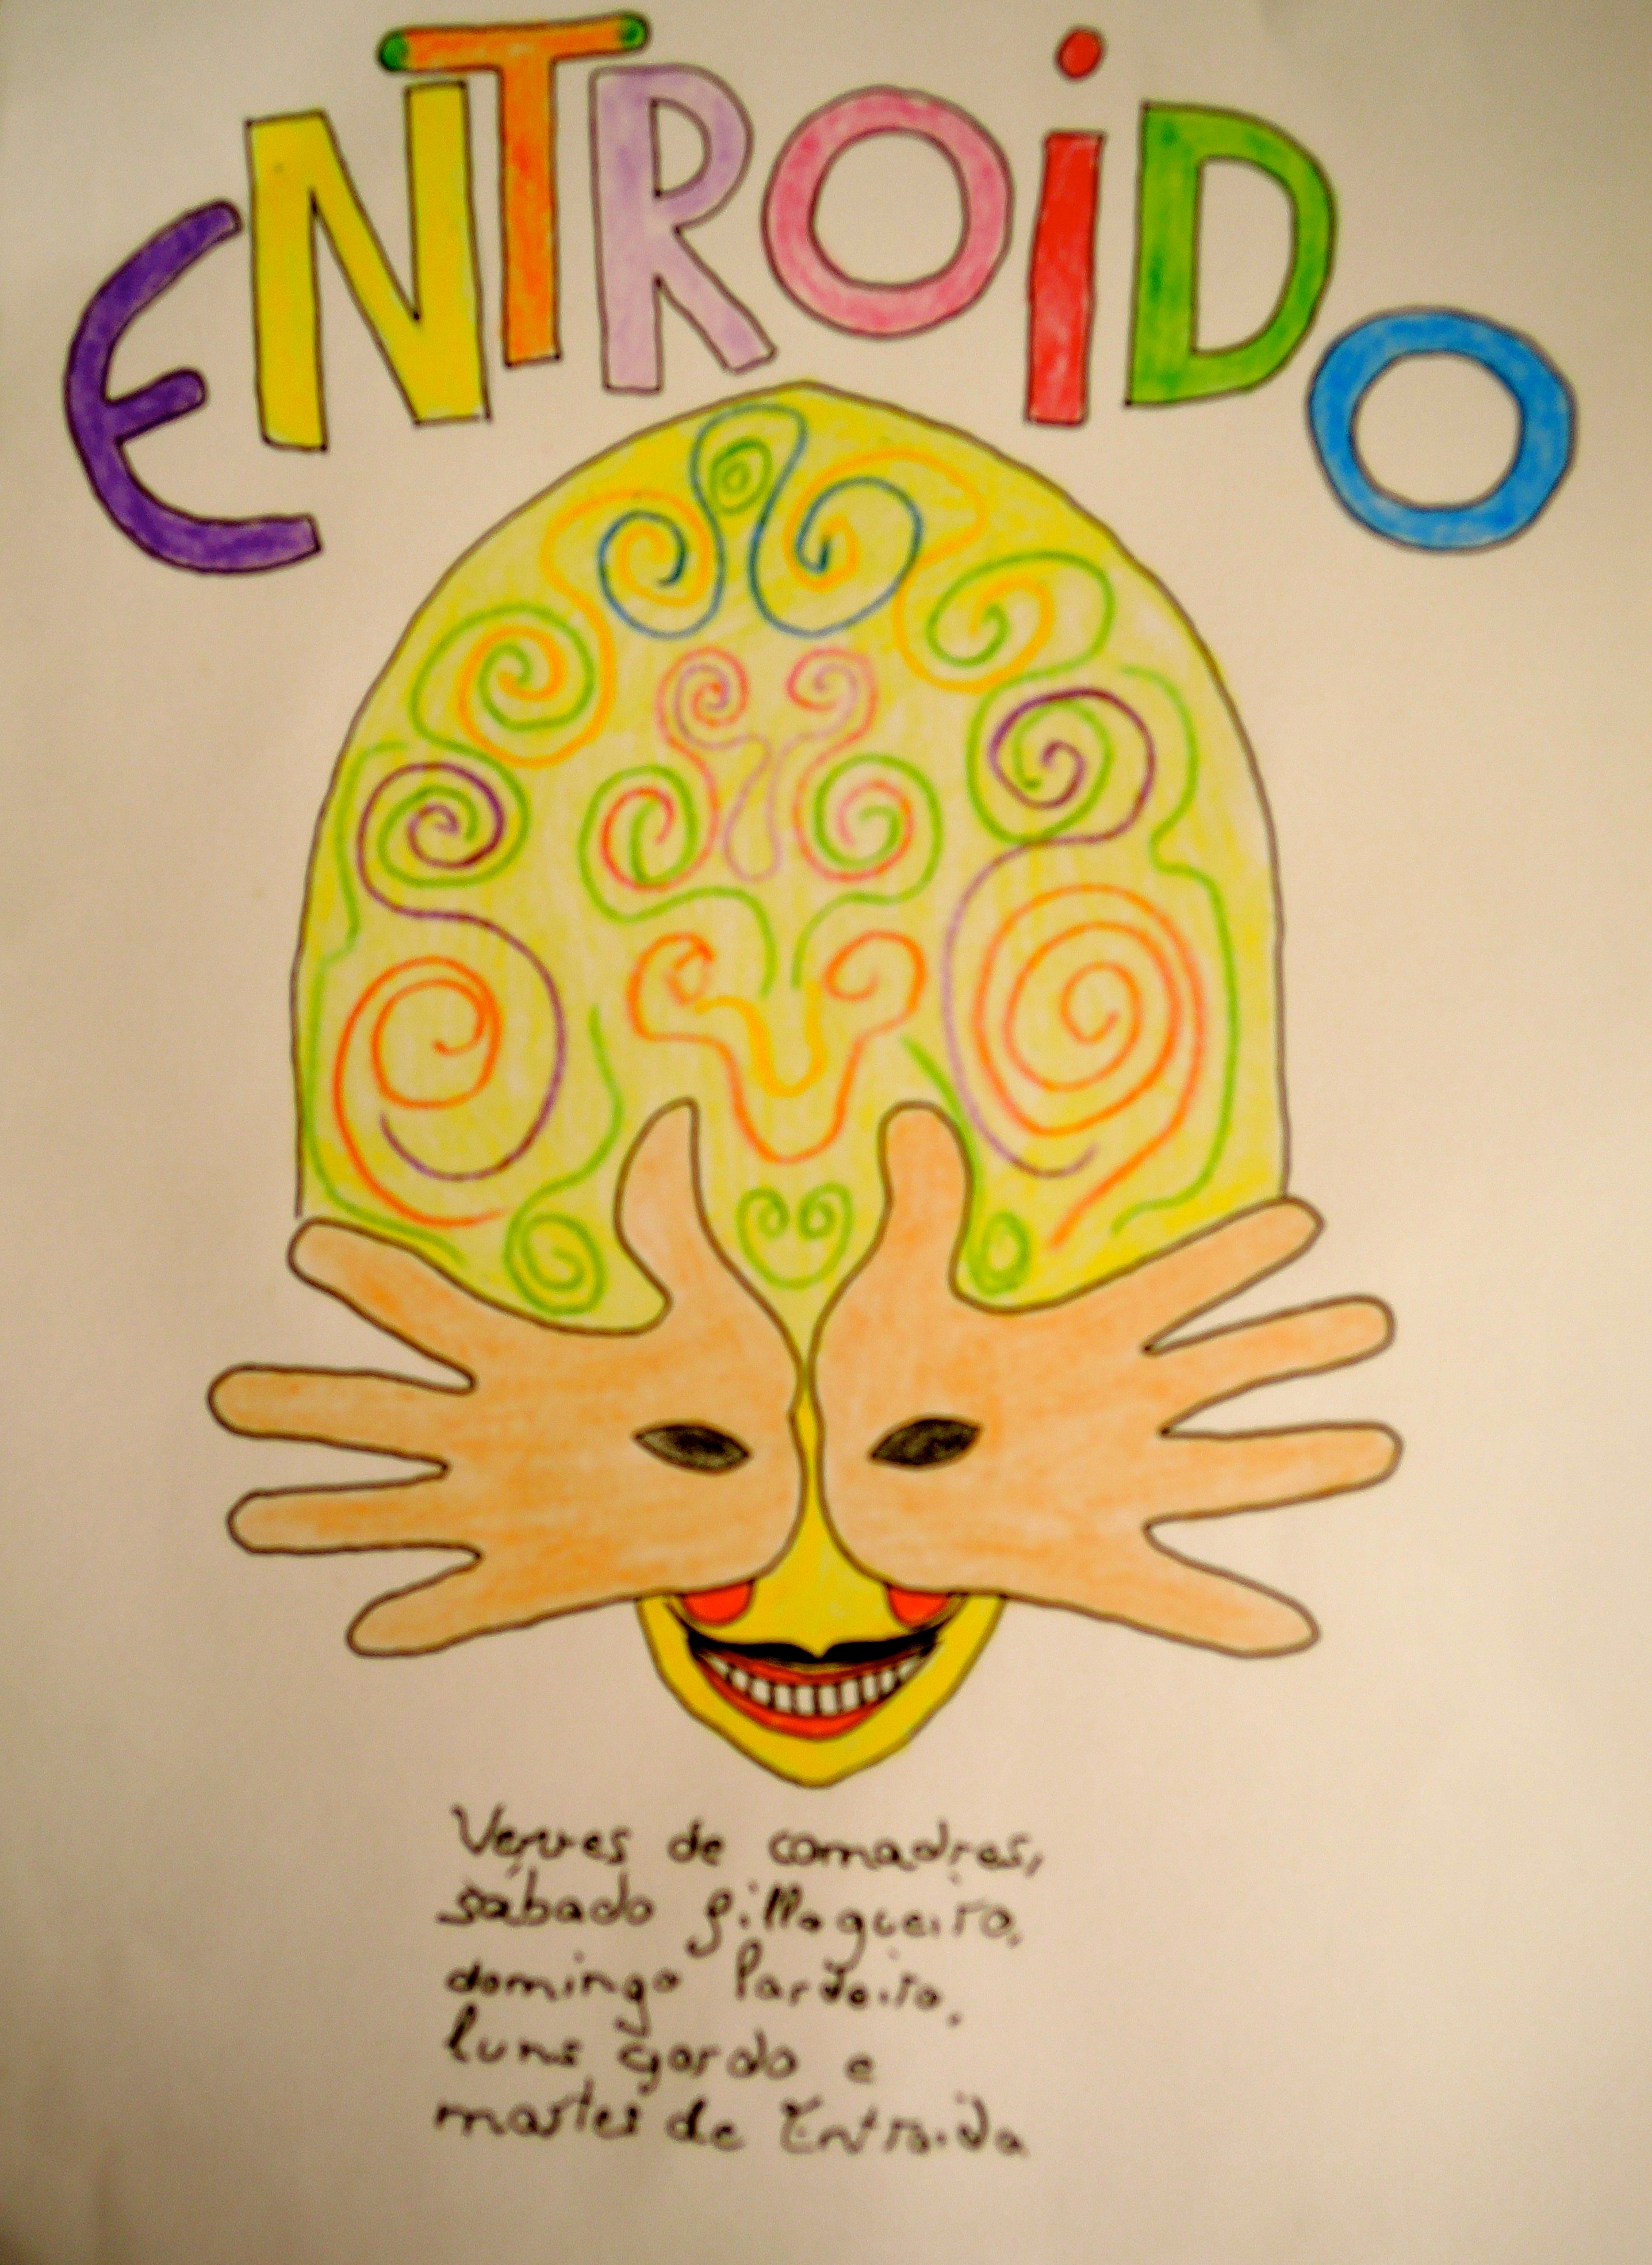 ENTROiDO
Venres de comadres,
sábado fillogueiro,
domingo lardeiro,
luns gordo e
martes de Entroido